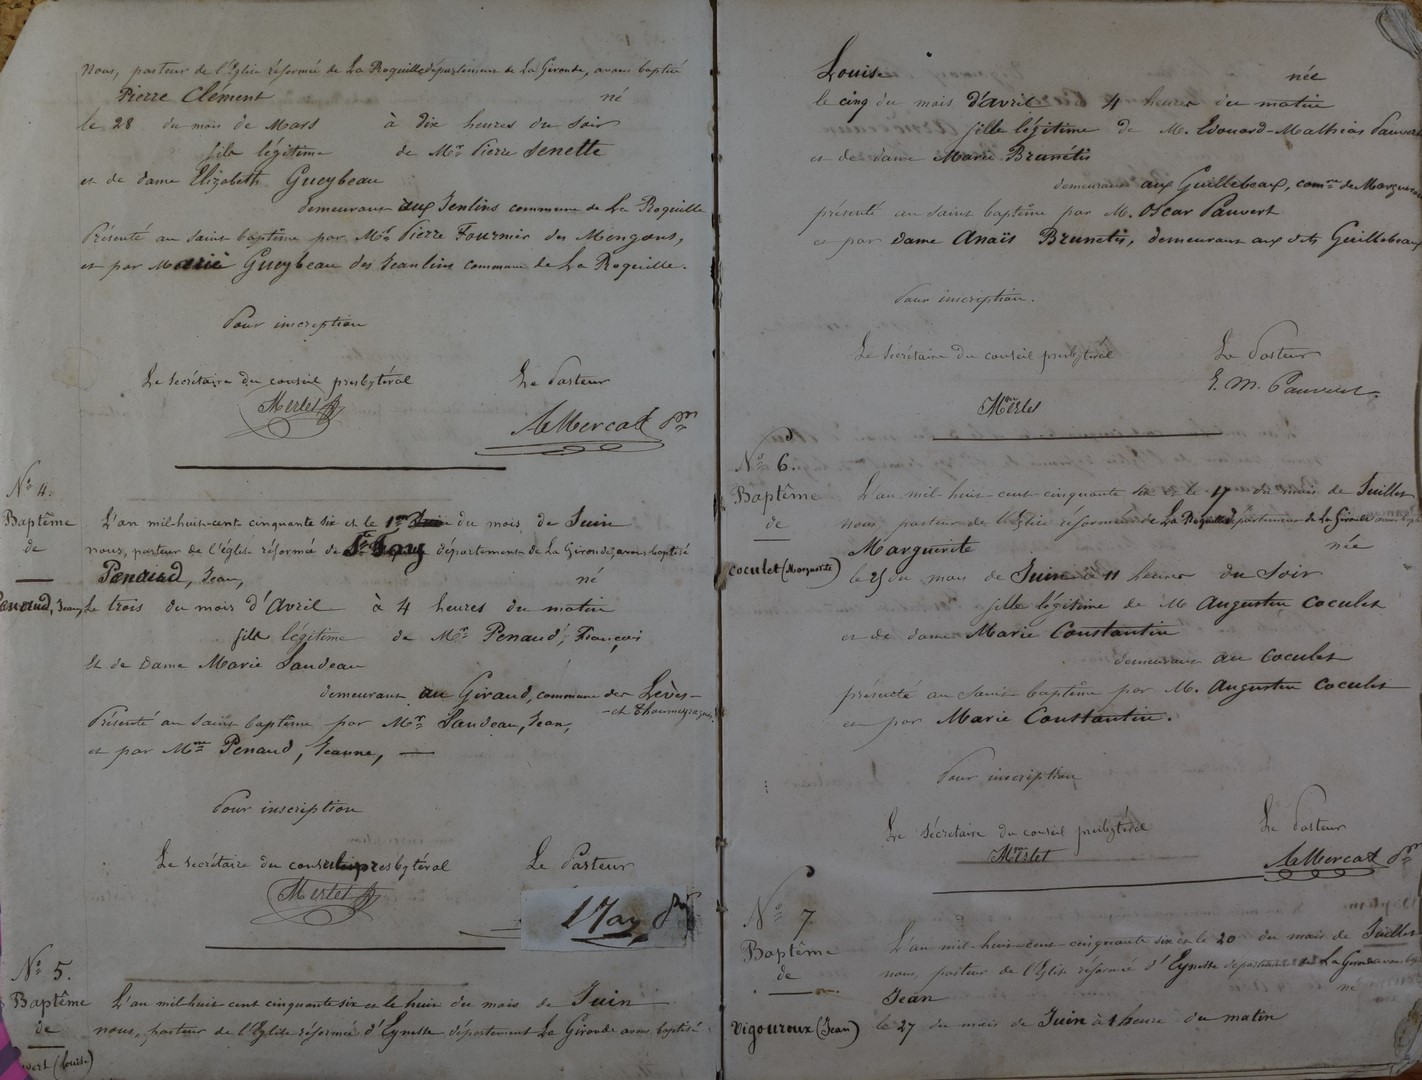 Nous, pasteur de l'Eglise réformée de La Roquille département de La Gironde, avons baptisé
Pierre Clément né
le 28 du mois de Mars à dix heures du soir
fils légitime de Mr Pierre Jenette
et de dame Elizabeth Gueybeau
demeurant aux Jenlins commune de La Roquille
Présenté au saint baptême par Mr Pierre Fournier des Mengons,
et par Marie Gueybeau des Jeanlins commune de La Roquille.
Pour inscription
Le secrétaire du conseil presbytéral Le Pasteur
Merlet AMercat pr
No 4.
Baptême
de
Penaud, Jean,
L'an mil-huit-cent cinquante six et le 1er du mois de Juin
nous, pasteur de l'église réformée de Ste Foy département de La Gironde, avons baptisé
Penaud, Jean, né
Le trois du mois d'Avril à 4 heures du matin
fils légitime de Mr Penaud, François,
Et de Dame Marie Jaudeau
demeurant au Giraud, commune des Lèves-
-et Thoumeyragues.
Présenté au saint baptême par Mr Jaudeau, Jean,
et par Mme Penaud, Jeanne, —
Pour inscription
Le secrétaire du conseil presbytéral Le Pasteur
Merlet pr
No 5.
Baptême
de
vert (Louise)
L'an mil-huit-cent cinquante six et le huit du mois de Juin
nous, pasteur de l'Eglise réformée d'Eynesse département La Gironde avons baptisé
Louise née
le cinq du mois d'avril 4 heures du matin
fille légitime de M. Edouard-Mathias Pauvert
et de dame Marie Brunétis
demeurant aux Guillebeaux, comne de Margueron
présenté au saint baptême par M. Oscar Pauvert
et par dame Anaïs Brunetis, demeurant aux dits Guillebeaux
Pour inscription.
Le secrétaire du conseil presbytéral Le Pasteur
Merlet E. M. Pauvert.
No 6.
Baptême
de
Coculet (Marguerite)
L'an mil-huit-cent-cinquante six et le 17 du mois de Juillet
nous, pasteur de l'Eglise réformée de La Roquille département de La Gironde avons baptisé
Marguerite née
le 25 du mois de Juin à 11 heures du Soir
fille légitime de M. Augustin Coculet
et de dame Marie Constantin
demeurant au Coculet
présenté au saint baptême par M. Augustin Coculet
et par Marie Constantin.
Pour inscription
Le Sécrétaire du conseil presbytéral Le Pasteur
Merlet AMercat pr
No 7
Baptême
de
Vigouroux (Jean)
L'an mil-huit-cent-cinquante six et le 20 du mois de Juillet
nous, pasteur de l'Eglise réformée d'Eynesse département de La Gironde avons baptisé
Jean né
le 27 du mois de Juin à 1 heure du matin